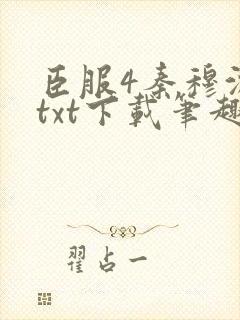 臣服4秦穆
txt下載筆趣
翟占一